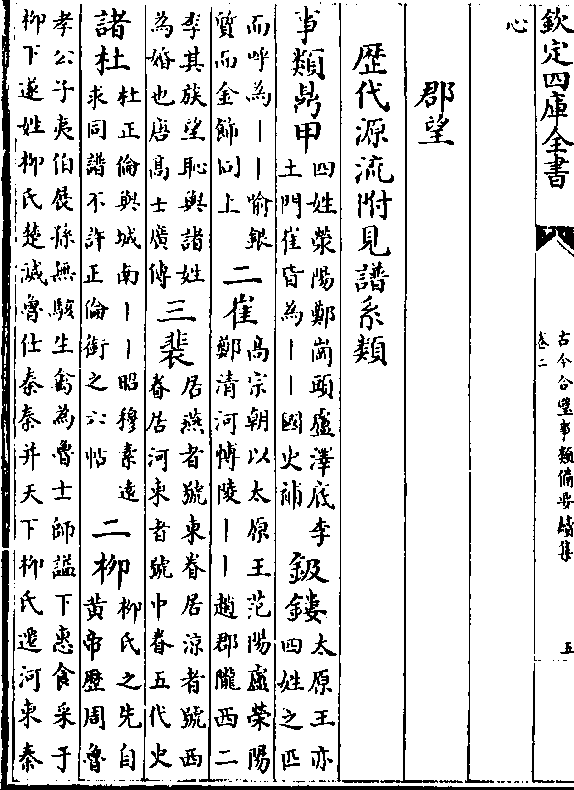 欽定四庫全書
古今合璧事類備要續集
卷二
五
心
郡望
歴代源流附見譜系類
事類鼎甲
四姓滎陽鄭崗頭盧澤底李
土門崔皆為丨丨國史補
鈒鏤
太原王亦
四姓之匹
而呼為丨丨喻銀
質而金飾同上
二崔
高宗朝以太原王范陽盧榮陽
鄭清河博陵丨丨趙郡隴西二
李其族望恥與諸姓
為婚也唐髙士廉傳
三裴
居燕者號東眷居涼者號西
眷居河東者號中眷五代史
諸杜
杜正倫與城南丨丨昭穆素遠
求同譜不許正倫銜之六帖
二柳
柳氏之先自
黄帝歴周魯
孝公子夷伯展孫無駭生禽為魯士師諡下惠食采于
柳下遂姓柳氏楚滅魯仕秦秦并天下柳氏遷河東秦